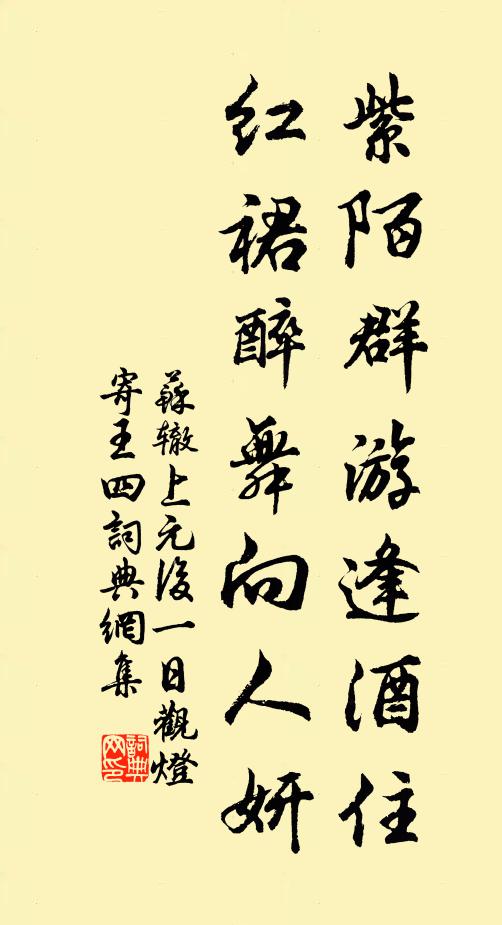 紫陌群游逢酒住
红裙醉舞向人妍
蘇辙上元後一日觀燈
寄王四詞典網集
詞典
网印